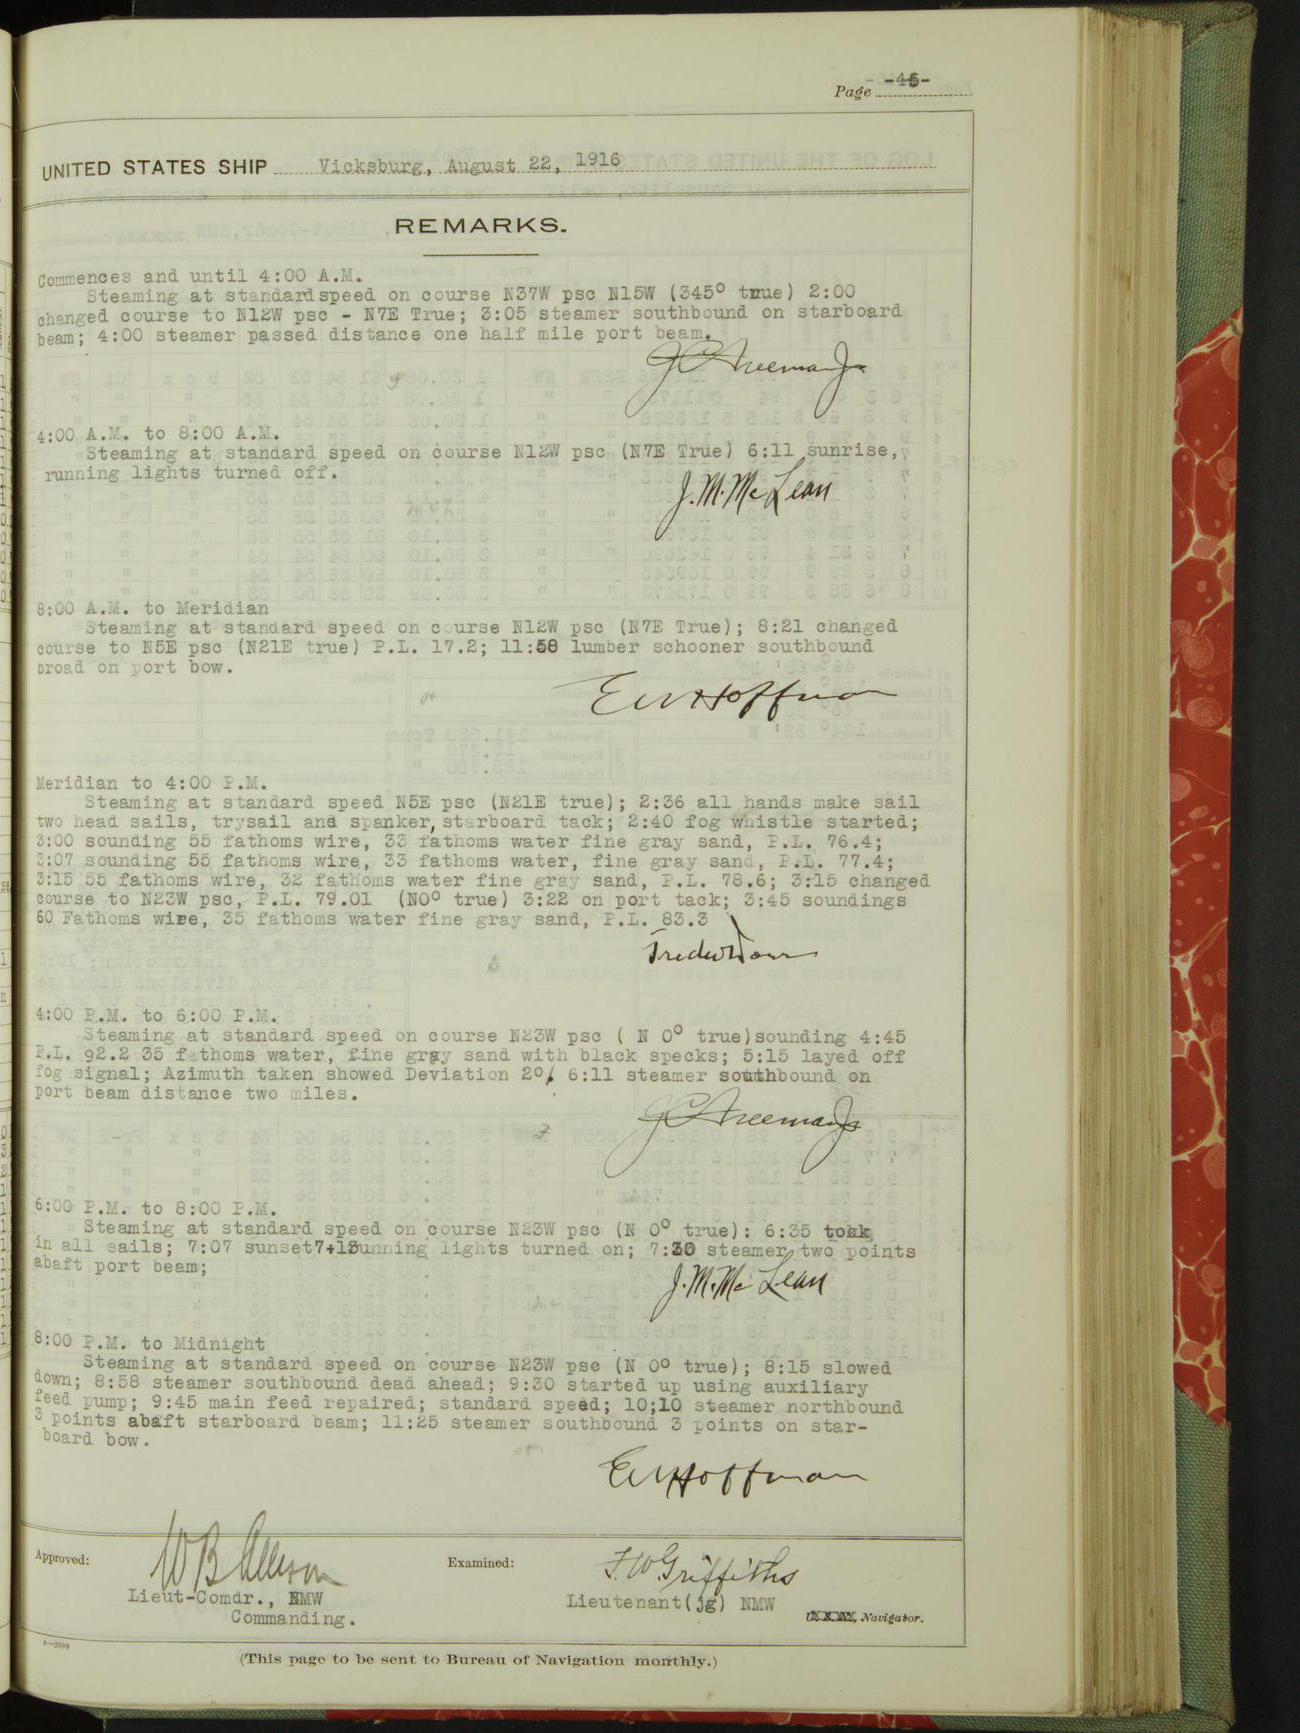 Page -45-
UNITED STATES SHIP Vicksburg, August 22, 1916
REMARKS.
Commences and until 4:00 A.M.
Steaming at standardspeed on course N37W psc N15W (345° true) 2:00
changed course to N12W psc - N7E True; 3:05 steamer southbound on starboard
beam; 4:00 steamer passed distance one half mile port beam.
J C Freeman Jr
4:00 A.M. to 8:00 A.M.
Steaming at standard speed on course N12W psc (N7E True) 6:11 sunrise,
running lights turned off.
J. M. McLean
8:00 A.M. to Meridian
Steaming at standard speed on course N12W psc (N7E True); 8:21 changed
course to N5E psc (N21E true) P.L. 17.2; 11:58 lumber schooner southbound
broad on port bow.
EW Hoffman
Meridian to 4:00 P.M.
Steaming at standard speed N5E psc (N21E true); 2:36 all hands make sail
two head sails, trysail and spanker, starboard tack; 2:40 fog whistle started;
3:00 sounding 55 fathoms wire, 33 fathoms water fine gray sand, P.L. 76.4;
3:07 sounding 55 fathoms wire, 33 fathoms water, fine gray sand, P.L. 77.4;
3:15 55 fathoms wire, 32 fathoms water fine gray sand, P.L. 78.6; 3:15 changed
course to N23W psc, P.L. 79.01 (N0° true) 3:22 on port tack; 3:45 soundings
60 Fathoms wire, 35 fathoms water fine gray sand, P.L. 83.3
4:00 P.M. to 6:00 P.M.
Steaming at standard speed on course N23W psc ( N 0° true)sounding 4:45
P.L. 92.2 35 fathoms water, fine gray sand with black specks; 5:15 layed off
fog signal; Azimuth taken showed Deviation 2°. 6:11 steamer southbound on
port beam distance two miles.
J C Freeman Jr
6:00 P.M. to 8:00 P.M.
Steaming at standard speed on course N23W psc (N 0° true): 6:35 took
in all sails; 7:07 sunset 7:13 running lights turned on; 7:30 steamer two points
abaft port beam;
J. M. McLean
8:00 P.M. to Midnight
Steaming at standard speed on course N23W psc (N 0° true); 8:15 slowed
down; 8:58 steamer southbound dead ahead; 9:30 started up using auxiliary
feed pump; 9:45 main feed repaired; standard speed; 10;10 steamer northbound
3 points abaft starboard beam; 11:25 steamer southbound 3 points on star-
board bow.
EW Hoffman
Approved: W B Allison
Examined: F. W. Griffiths
Lieut-Comdr., NMW
Lieutenant(jg) NMW
Commanding.
Navigator.
(This page to be sent to Bureau of Navigation monthly.)